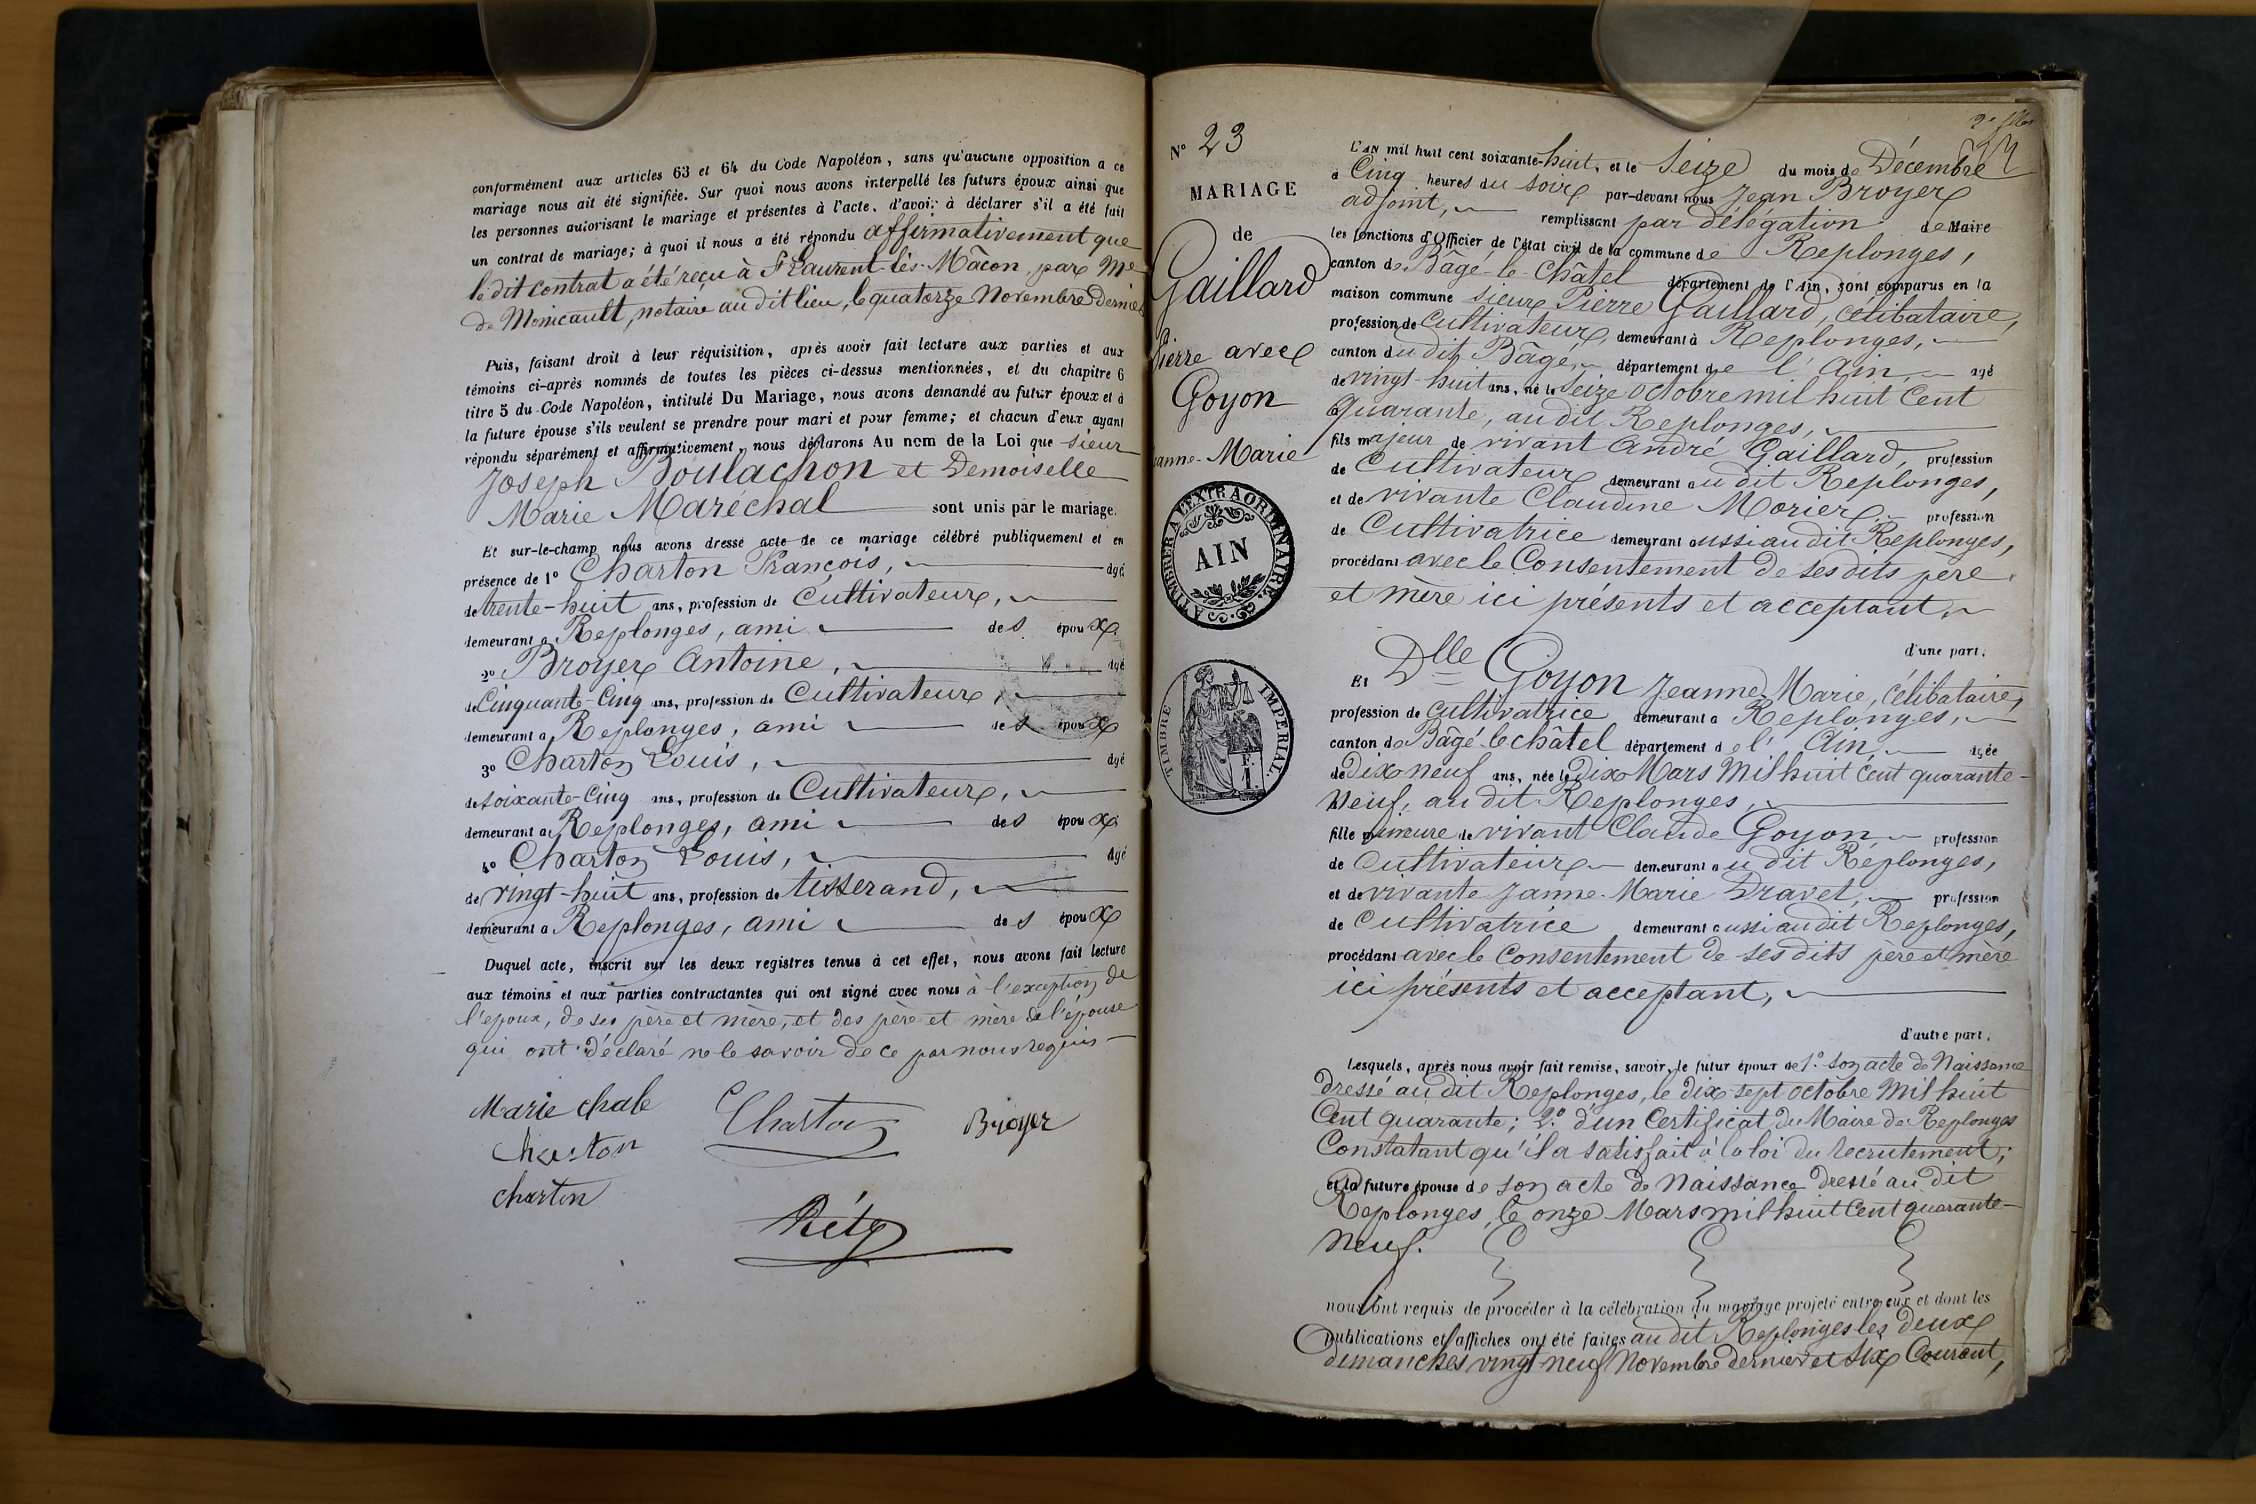 conformément aux articles 63 et 64 du Code Napoléon, sans qu'aucune opposition a ce
mariage nous ait été signifiée. Sur quoi nous avons interpellé les futurs époux ainsi que
les personnes autorisant le mariage et présentes à l'acte, d'avoir à déclarer s'il a été fait
un contrat de mariage; à quoi il nous a été répondu affirmativement que
le dit contrat a été reçu à St Laurent-lès-Mâcon par Me
de Monicault, notaire au dit lieu, le quatorze Novembre Dernier
Puis, faisant droit à leur réquisition, après avoir fait lecture aux parties et aux
témoins ci-après nommés de toutes les pièces ci-dessus mentionnées, et du chapitre 6
titre 5 du Code Napoléon, intitulé Du Mariage, nous avons demandé au futur époux et à
la future épouse s'ils veulent se prendre pour mari et pour femme; et chacun d'eux ayant
répondu séparément et affirmativement, nous déclarons Au nom de la Loi que sieur
Joseph Boulachon et Demoiselle
Marie Maréchal sont unis par le mariage.
Et sur-le-champ nous avons dressé acte de ce mariage célébré publiquement et en
présence de 1° Charton François, âgé
de trente-huit ans, profession de Cultivateur,
demeurant a Replonges, ami des époux
2° Broyer Antoine, âgé
de Cinquante-Cinq ans, profession de Cultivateur,
demeurant a Replonges, ami des époux
3° Charton Louis, âgé
de soixante-Cinq ans, profession de Cultivateur,
demeurant a Replonges, ami des époux
4° Charton Louis, âgé
de vingt-huit ans, profession de tisserand,
demeurant a Replonges, ami des époux
Duquel acte, inscrit sur les deux registres tenus à cet effet, nous avons fait lecture
aux témoins et aux parties contractantes qui ont signé avec nous à l'exception de
l'époux, de ses père et mère, et des père et mère de l'épouse
qui ont déclaré ne le savoir de ce par nous requis
Marie chale Charton Broyer
Charton
charton
Réty
N° 23
MARIAGE
de
Gaillard
Pierre avec
Goyon
Jeanne-Marie
A TIMBRER A L'EXTRAORDINAIRE.
AIN
TIMBRE IMPERIAL.
F.
1.
L'AN mil huit cent soixante-huit, et le Seize du mois de Décembre
à Cinq heures du soir par-devant nous Jean Broyer
adjoint, remplissant par délégation de Maire
les fonctions d'Officier de l'état civil de la commune de Replonges,
canton de Bâgé-le-Châtel département de l'Ain, sont comparus en la
maison commune sieur Pierre Gaillard, célibataire,
profession de Cultivateur, demeurant à Replonges,
canton du dit Bâgé, département de l'Ain, âgé
de vingt-huit ans, né le Seize octobre mil huit Cent
quarante, au dit Replonges,
fils majeur de vivant André Gaillard, profession
de Cultivateur demeurant au dit Replonges,
et de vivante Claudine Morier, profession
de Cultivatrice demeurant aussi au dit Replonges,
procédant avec le Consentement de ses dits père
et mère ici présents et acceptant,
d'une part.
Et Dlle Goyon Jeanne Marie, Célibataire,
profession de Cultivatrice demeurant a Replonges,
canton de Bâgé-le châtel département de l'Ain âgée
de Dix neuf ans, née le Dix Mars Mil huit Cent quarante-
Neuf, au dit Replonges,
fille mineure de vivant Claude Goyon, profession
de Cultivateur demeurant au dit Replonges,
et de vivante Jeanne-Marie Dravet, profession
de Cultivatrice demeurant aussi au dit Replonges,
procédant avec le Consentement de ses dits père et mère
ici présents et acceptant,
d'autre part.
Lesquels, après nous avoir fait remise, savoir, le futur époux de 1° son acte de Naissance
dressé au dit Replonges, le dix-sept octobre Mil huit
Cent quarante; 2° d'un Certificat du Maire de Replonges
Constatant qu'il a satisfait à la loi du recrutement;
et la future épouse de son acte de Naissance dressé au dit
Replonges, le onze Mars mil huit Cent quarante-
Neuf.
nous ont requis de procéder à la célébration du mariage projeté entre eux et dont les
publications et affiches ont été faites au dit Replonges les deux
dimanches vingt-neuf Novembre dernier et six Courant,